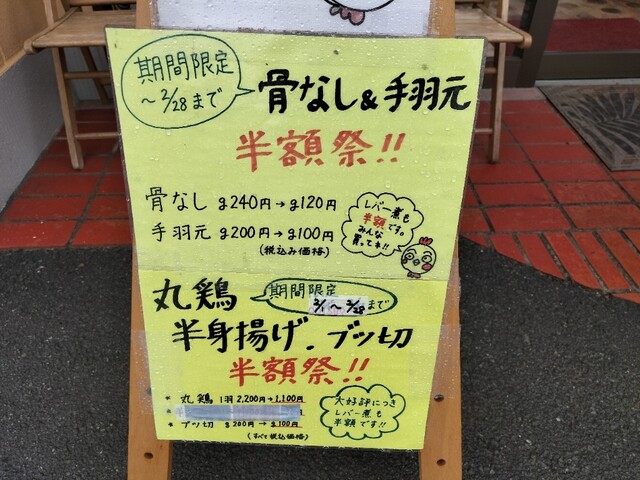 期間限定
～2/28まで
骨なし&手羽元
半額祭!!
骨なし g240円→g120円
手羽元 g200円→g100円
(税込み価格)
レバー煮も
半額です。
みんな
買ってネ!!
丸鶏
期間限定
2/1～2/28まで
半身揚げ、ブツ切
半額祭!!
* 丸鶏 1羽 2,200円→1,100円
* ブツ切 g200円→g100円
(すべて税込価格)
大好評につき
レバー煮も
半額です!!